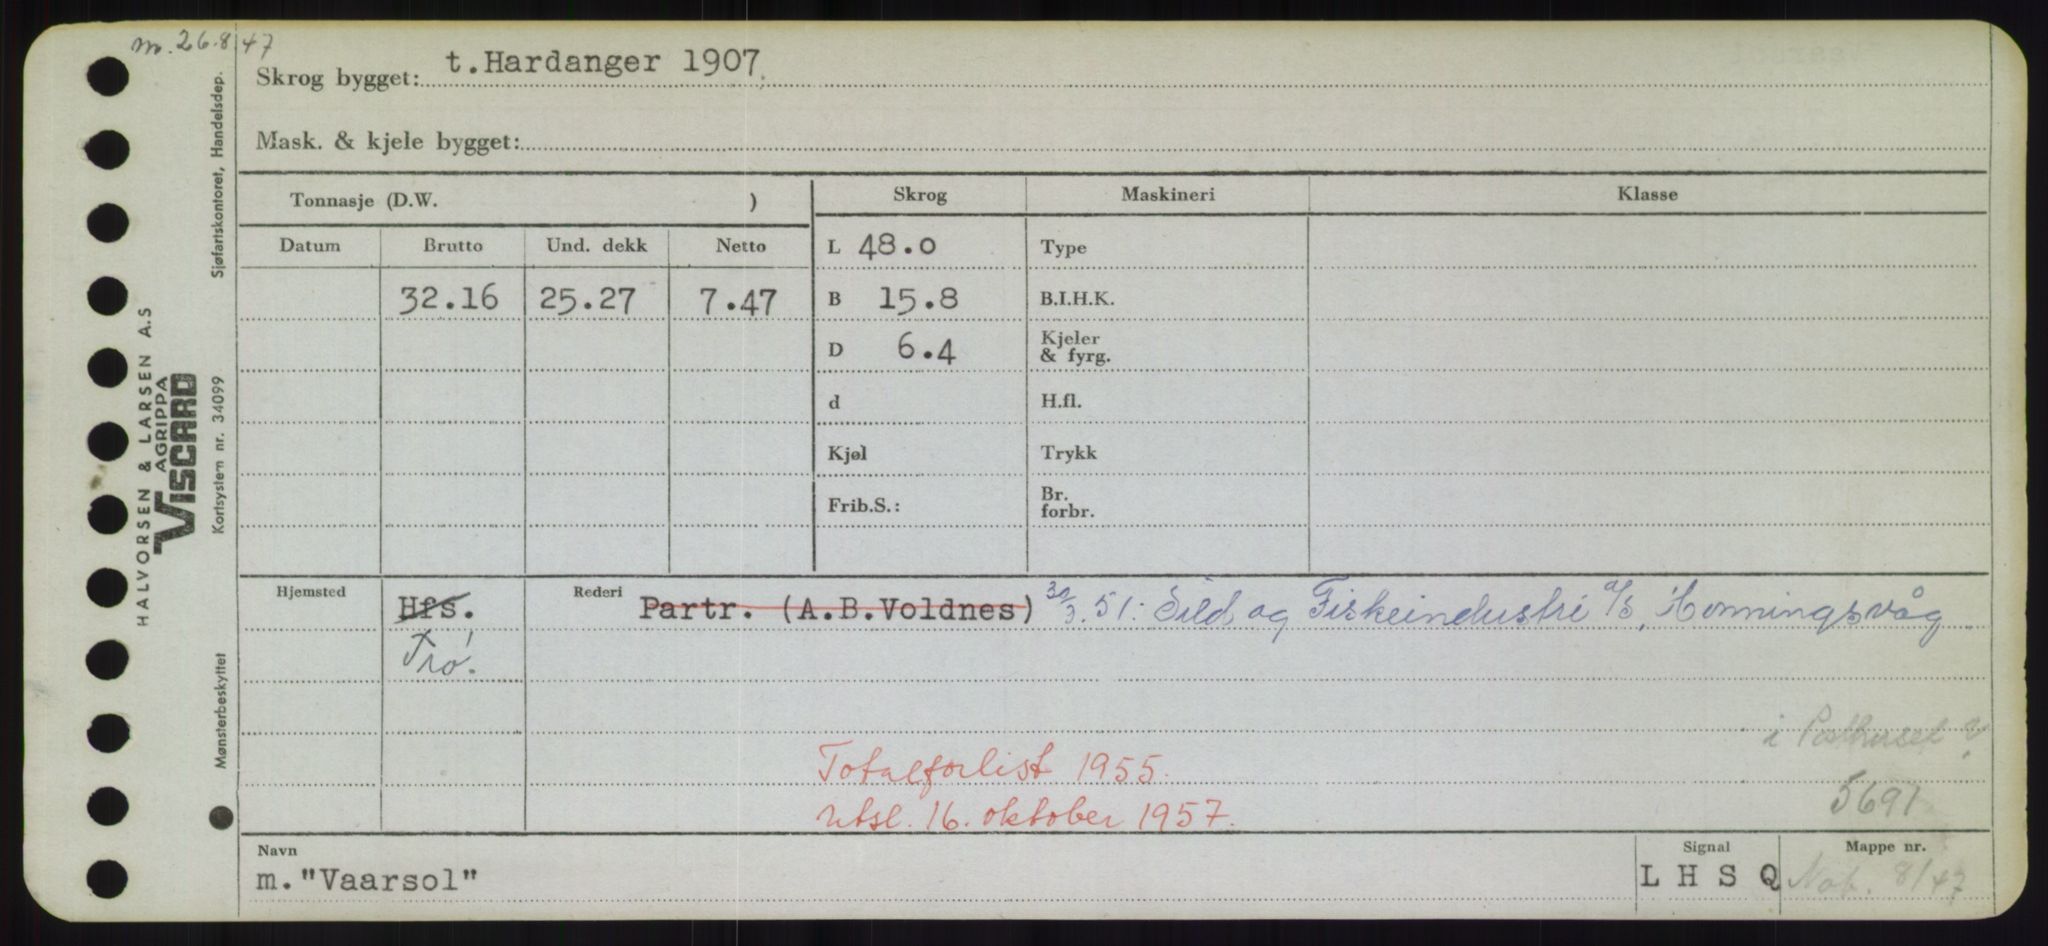 m. 26.8/47
Skrog bygget: t.Hardanger 1907
Mask. & kjele bygget:
Tonnasje (D.W. )
Skrog Maskineri Klasse
Datum Brutto Und. dekk Netto
L 48.0 Type
32.16 25.27 7.47 B 15.8 B.I.H.K.
D 6.4 Kjeler & fyrg.
d H.fl.
Kjøl Trykk
Frib.S.: Br. forbr.
Hjemsted Hfs. Rederi Partr. (A.B.Voldnes) 30/3.51: Sild og Fiskeindustri a/s, Honningsvåg
Trø.
i Posthuset V
Totalforlist 1955.
5691
utsl. 16. oktober 1957.
Navn Signal Mappe nr.
m."Vaarsol" L H S Q Not. 8/47
HALVORSEN & LARSEN A.S
AGRIPPA
VISCARD
Sjøfartskontoret, Handelsdep.
Kortsystem nr. 34099
Mønsterbeskyttet